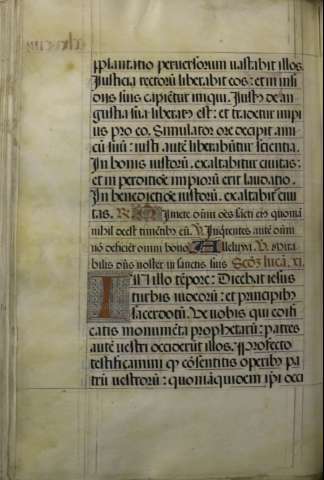 pplantatio peruersorum uastabit illos.
Justicia rectorū liberabit eos: et in insi
diis suis capiētur iniqui. Justꝰ de an
gustia sua liberatꝰ est: et tradetur impi
us pro eo. Simulator ore decipit ami
cū suū: iusti autē liberabūtur scientia.
In bonis iustorū exaltabitur ciuitas:
et in perditiōe impiorū erit laudatio.
In benedictiōe iustorū exaltabitur ciui
tas. R Timete dn̄m oēs sācti eiꝰ quoniā
nihil deest timētibꝰ eū. V. Inquirentes autē dn̄m
nō deficiēt omni bono. Alleluya. V. Mira
bilis dn̄s noster in sanctis suis Scd̄z lucā. xi.
In illo tēpore: Dicebat iesus
turbis iudeorū: et principibꝰ
sacerdotū. Ve uobis qui edifi
catis monumēta prophetarū: patres
autē uestri occiderūt illos. Profecto
testificamini qꝫ cōsentitis operibꝰ pa
trū uestrorū: quoniā quidem ipi occi